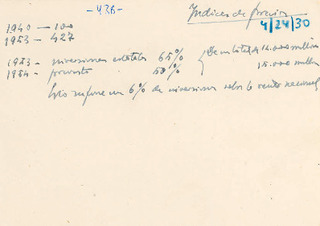 -436-
Indices de precios
4/24/30
1940 — 100
1953 — 427
1953 - inversiones estatales 65% { De un total de 12.000 millones
1954 - previsto 50% 15.000 millones
Esto supone un 6% de inversiones sobre la renta nacional